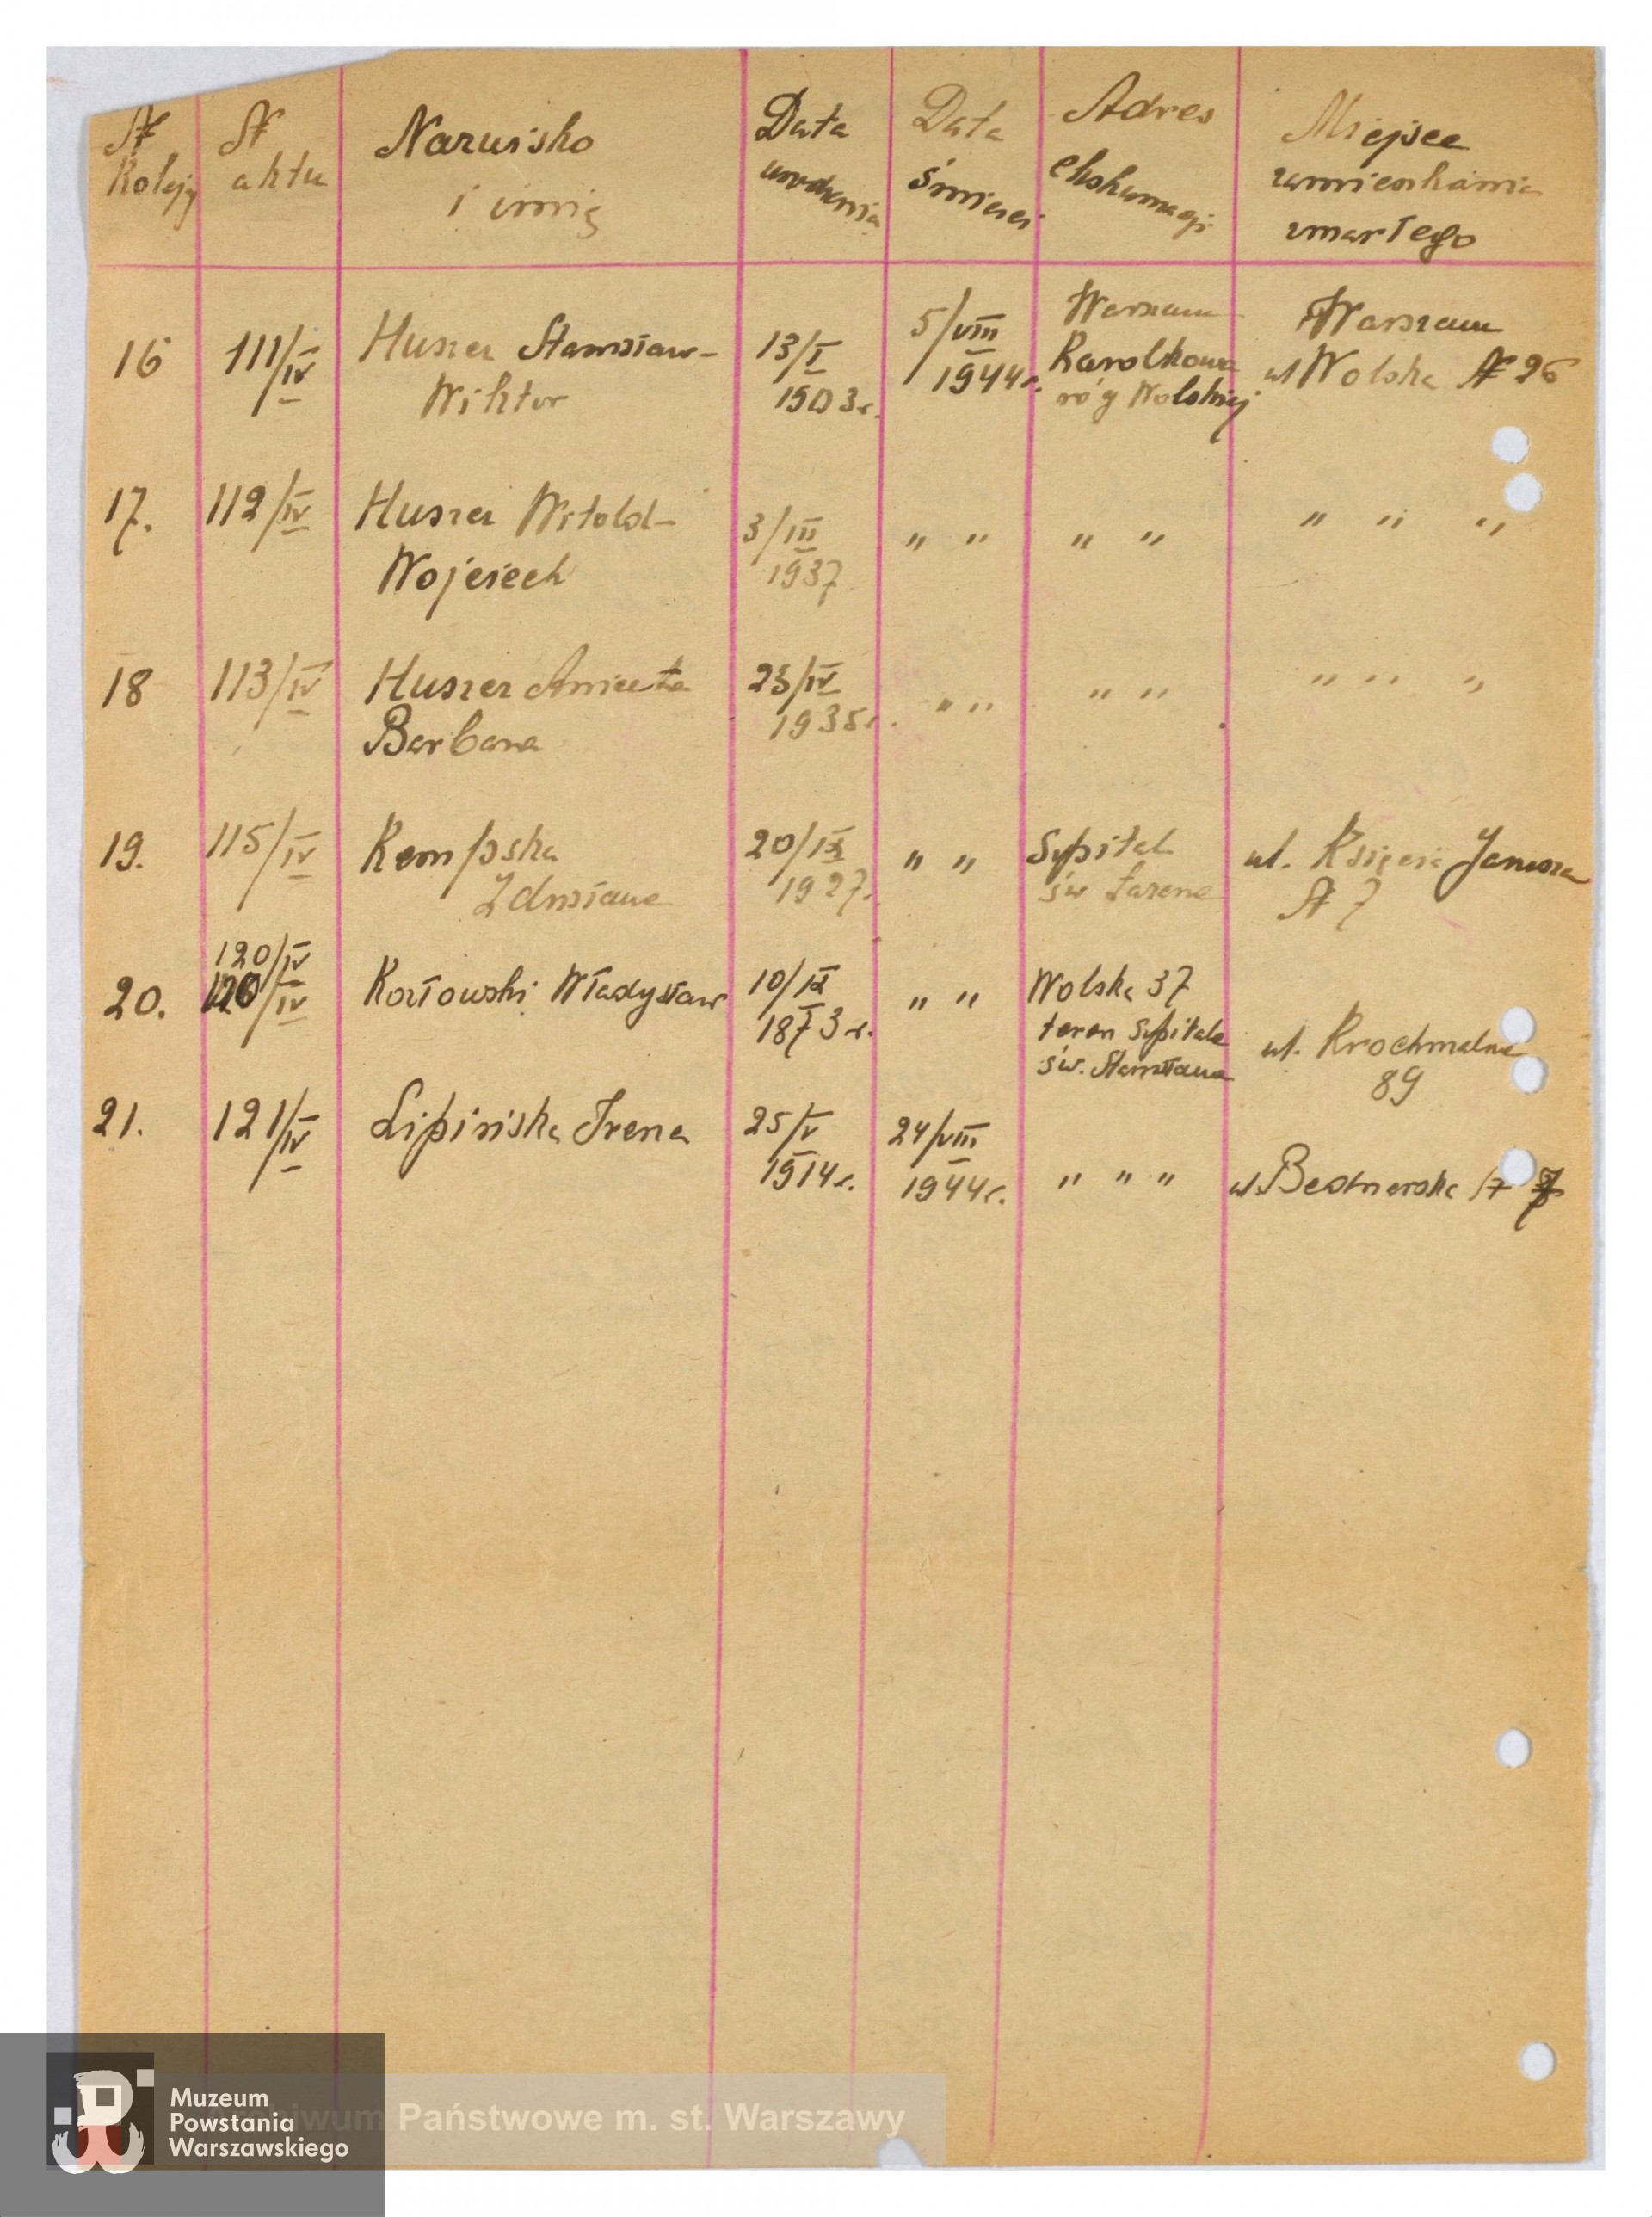 № Kolejy
№ aktu
Nazwisko i imię
Data urodzenia
Data śmierci
Adres ekshumacji
Miejsce zamieszkania zmarłego
16 111/IV Huszer Stanisław- 13/I 5/VIII Warszawa Warszawa
Wiktor 1903r. 1944r. Karolkowa róg Wolskiej ul Wolska № 26
17. 112/IV Huszer Witold- 3/III " " " " " " "
Wojciech 1937
18 113/IV Huszer Aniceta 23/IV " " " " " " "
Barbara 1935r.
19. 115/IV Kempska 20/IX " " Szpital ul. Księcia Janusza
Zdzisława 1927. św Łazarza № 7
120/IV
20. 120/IV Kozłowski Władysław 10/IX " " Wolska 37
1873r. teren szpitala ul. Krochmalna
św. Stanisława 89
21. 121/IV Lipińska Irena 25/V 24/VIII
1914r. 1944r. " " " ul. Bednarska 17
Muzeum
Powstania
Warszawskiego
Archiwum Państwowe m. st. Warszawy